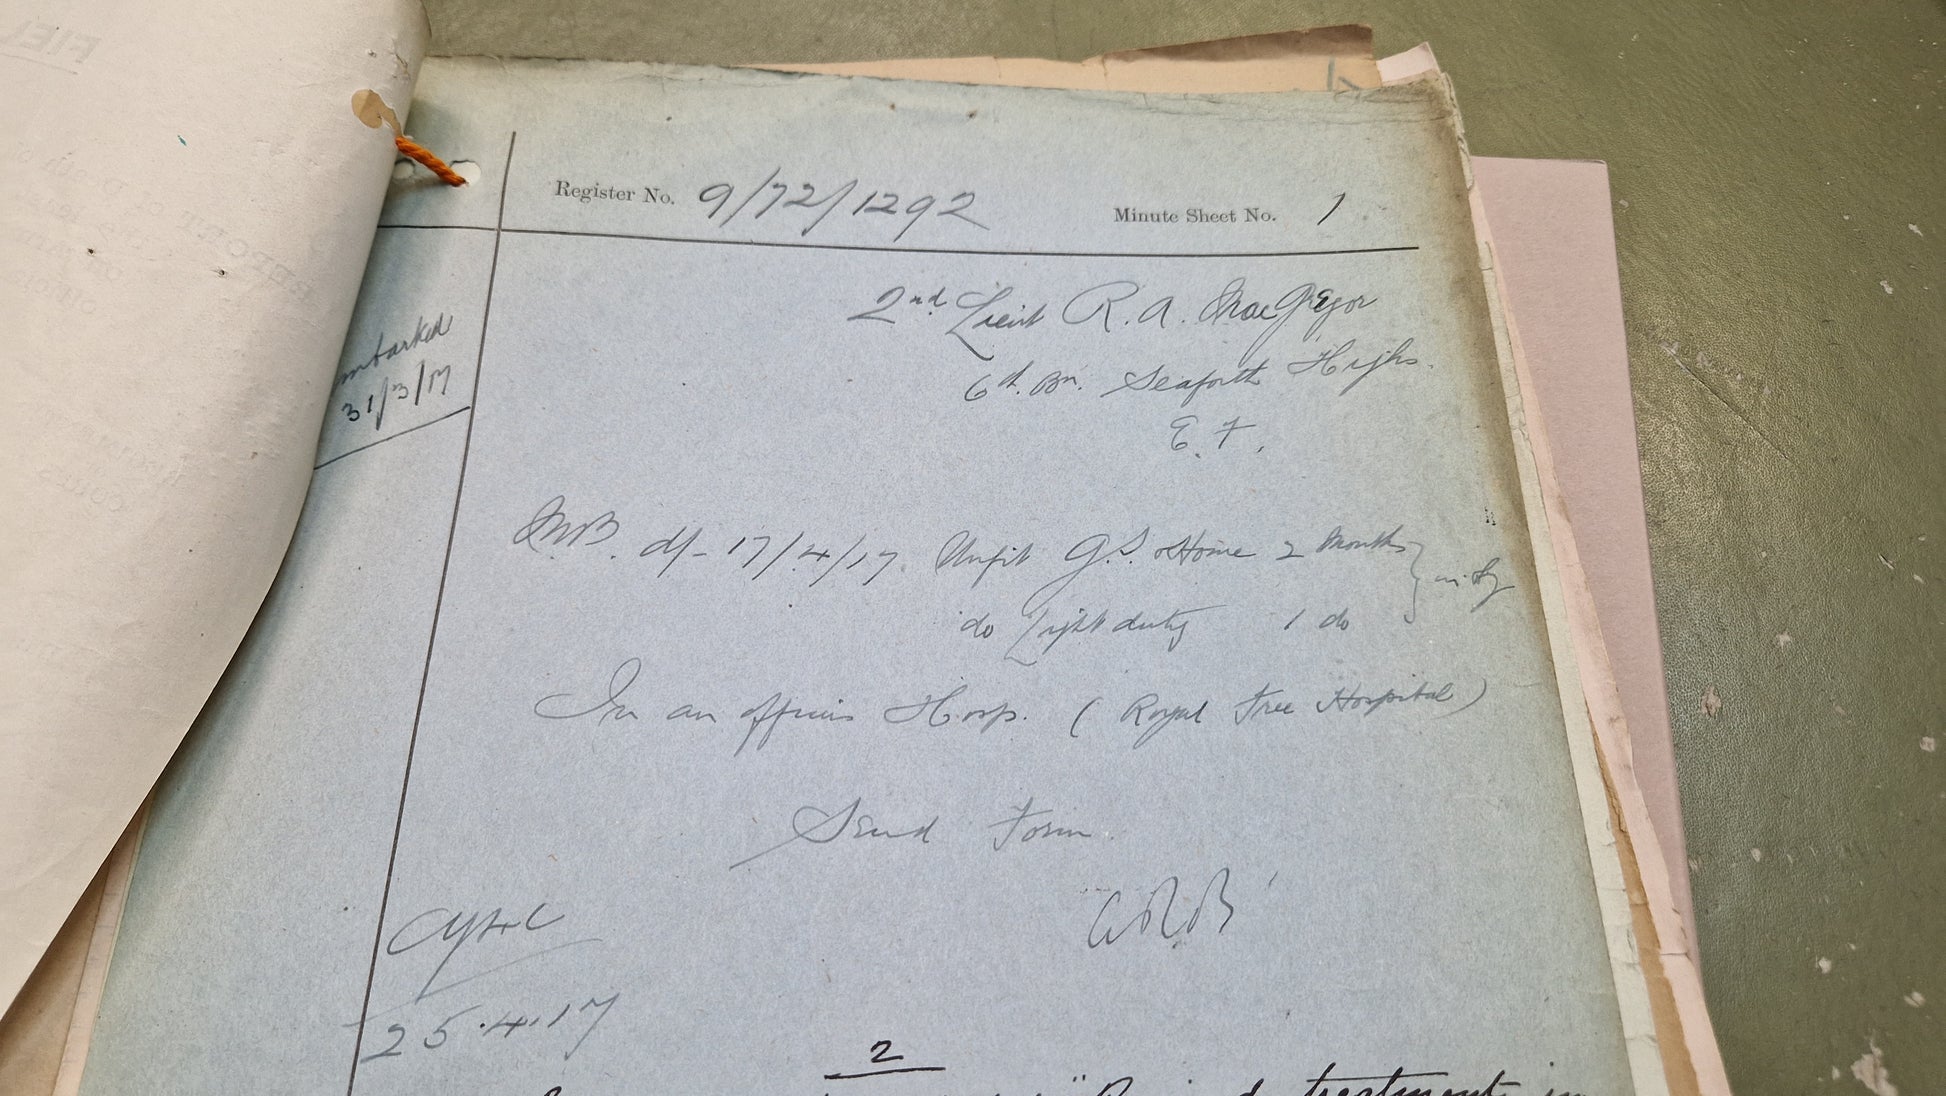 Register No. 9/72/1292
Minute Sheet No. 1
2nd Lieut R. A. MacGregor
6th Bn. Seaforth Highs.
E. F.
embarked
31/3/17
M.B. d/- 17/4/17. Unfit G.S. & Home 2 Months
do Light duty 1 do
In an officers Hosp. (Royal Free Hospital)
Send Form.
25.4.17
2
treatment in